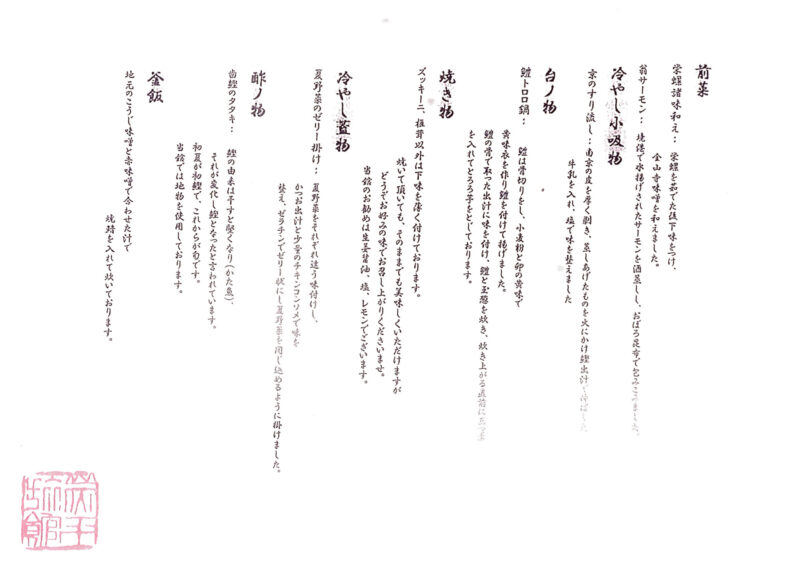 前菜
栄螺諸味和え： 栄螺を茹でた後下味をつけ、
金山寺味噌を和えました。
翁サーモン： 境港で水揚げされたサーモンを酒蒸しし、おぼろ昆布で包みこみました。
冷やし小吸物
京のすり流し： 南京の皮を厚く剥き、蒸しあげたものを火にかけ鰹出汁で伸ばした
牛乳を入れ、塩で味を整えました
台ノ物
鱧トロロ鍋： 鱧は骨切りをし、小麦粉と卵の黄味で
黄味衣を作り鱧を付けて揚げました。
鱧の骨で取った出汁に味を付け、鱧と玉葱を炊き、炊き上がる直前に三つ葉
を入れてとろろ芋をとじております。
焼き物
ズッキーニ、椎茸以外は下味を薄く付けております。
焼いて頂いても、そのままでも美味しくいただけますが
どうぞお好みの味でお召し上がりくださいませ。
当館のお勧めは生姜醤油、塩、レモンでございます。
冷やし蓋物
夏野菜のゼリー掛け： 夏野菜をそれぞれ違う味付けし、
かつお出汁と少量のチキンコンソメで味を
整え、ゼラチンでゼリー状にし夏野菜を閉じ込めるように掛けました。
酢ノ物
歯鰹のタタキ： 鰹の由来は干すと堅くなり（かた魚）、
それが変化し、鰹となったと言われています。
初夏が初鰹で、これからが旬です。
当館では地物を使用しております。
釜飯
地元のこうじ味噌と赤味噌で合わせた汁で
焼鯖を入れて炊いております。